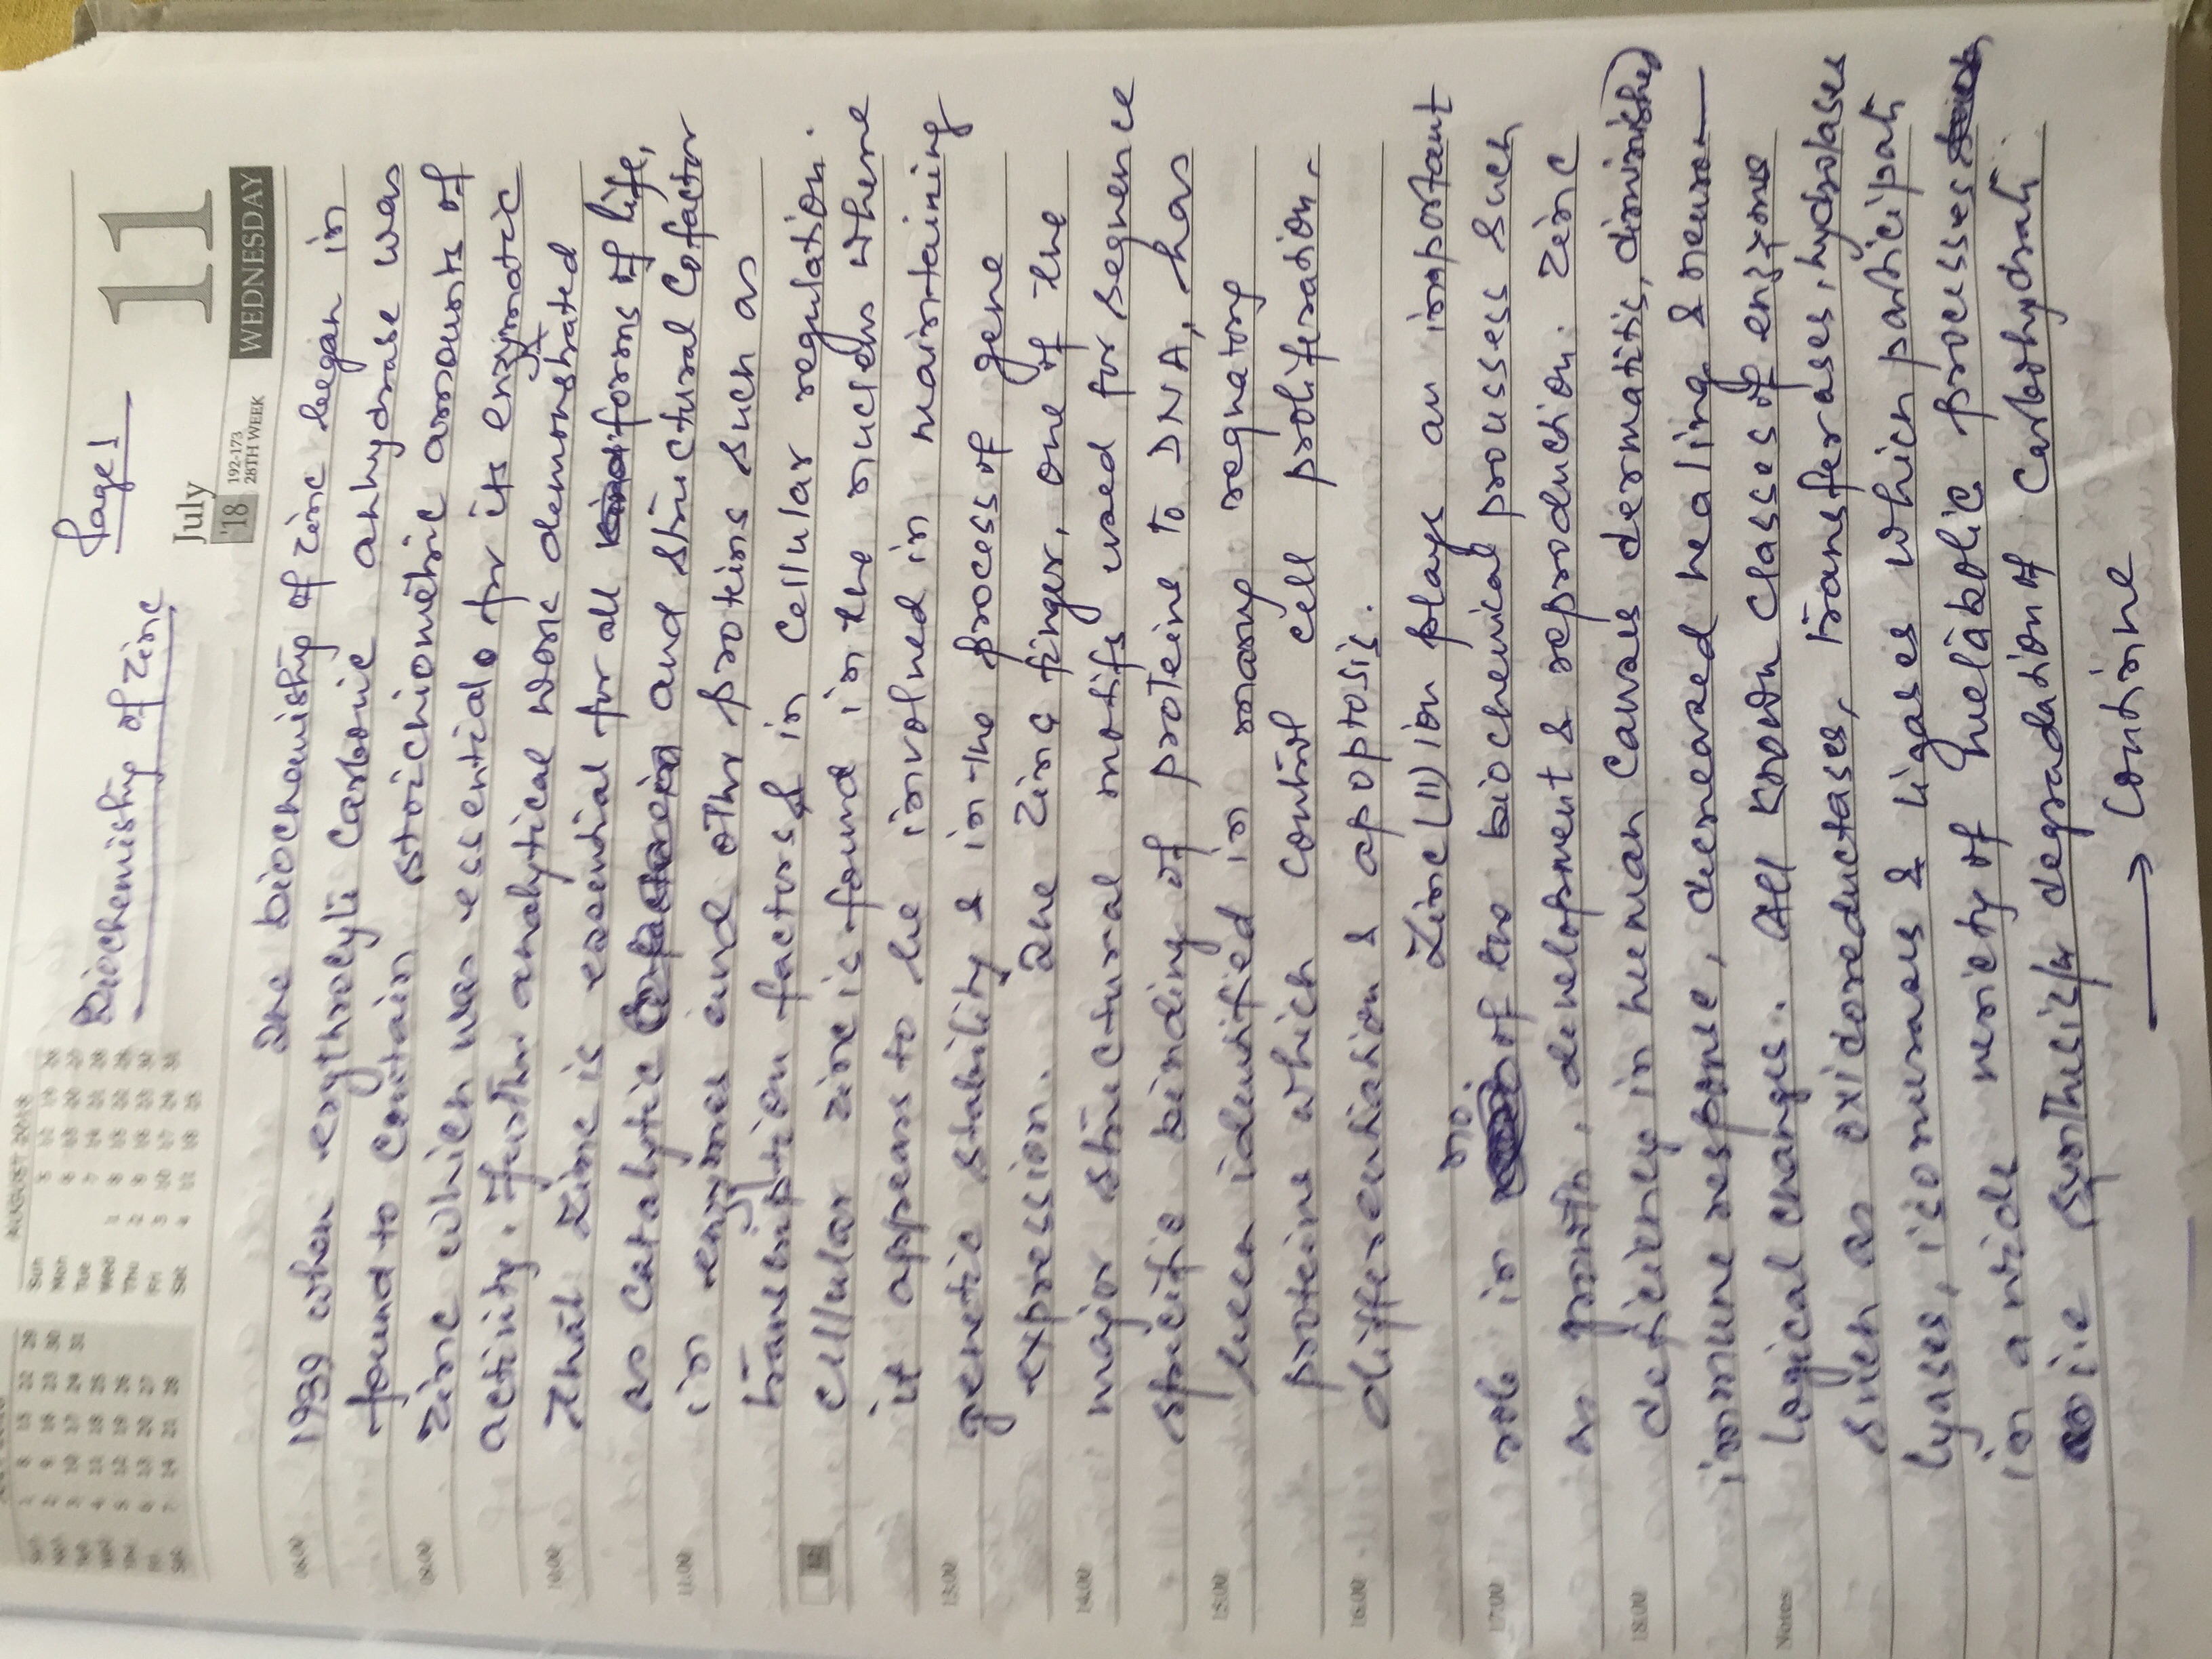 Page 1
Biochemistry of Zinc
July
11
'18
192-173
28TH WEEK
WEDNESDAY
AUGUST 2018
The biochemistry of zinc began in
1939 when erythrocyte Carbonic anhydrase was
found to contain stoichiometric amounts of
zinc which was essential for its enzymatic
activity. Further analytical work demonstrated
that zinc is essential for all forms of life,
as catalytic and structural Cofactor
in enzymes and other proteins such as
transcription factors & in cellular regulation.
Cellular zinc is found in the nucleus where
it appears to be involved in maintaining
genetic stability & in the process of gene
expression. The Zinc finger, one of the
major structural motifs used for sequence
specific binding of proteins to DNA, has
been identified in many regulatory
proteins which control cell proliferation,
differentiation & apoptosis.
Zinc(II) ion plays an important
role in no of two biochemical processes such
as growth, development & reproduction. Zinc
deficiency in human causes dermatitis, diminished
immune response, decreased healing & neuro-
logical changes. All known classes of enzymes
such as oxidoreductases, transferases, hydrolases
lyases, isomerases & ligases which participate
in a wide variety of metabolic processes
i.e synthesis/& degradation of Carbohydrate
→ Continue
08:00
09:00
10:00
11:00
12
13:00
14:00
15:00
16:00
17:00
18:00
Notes